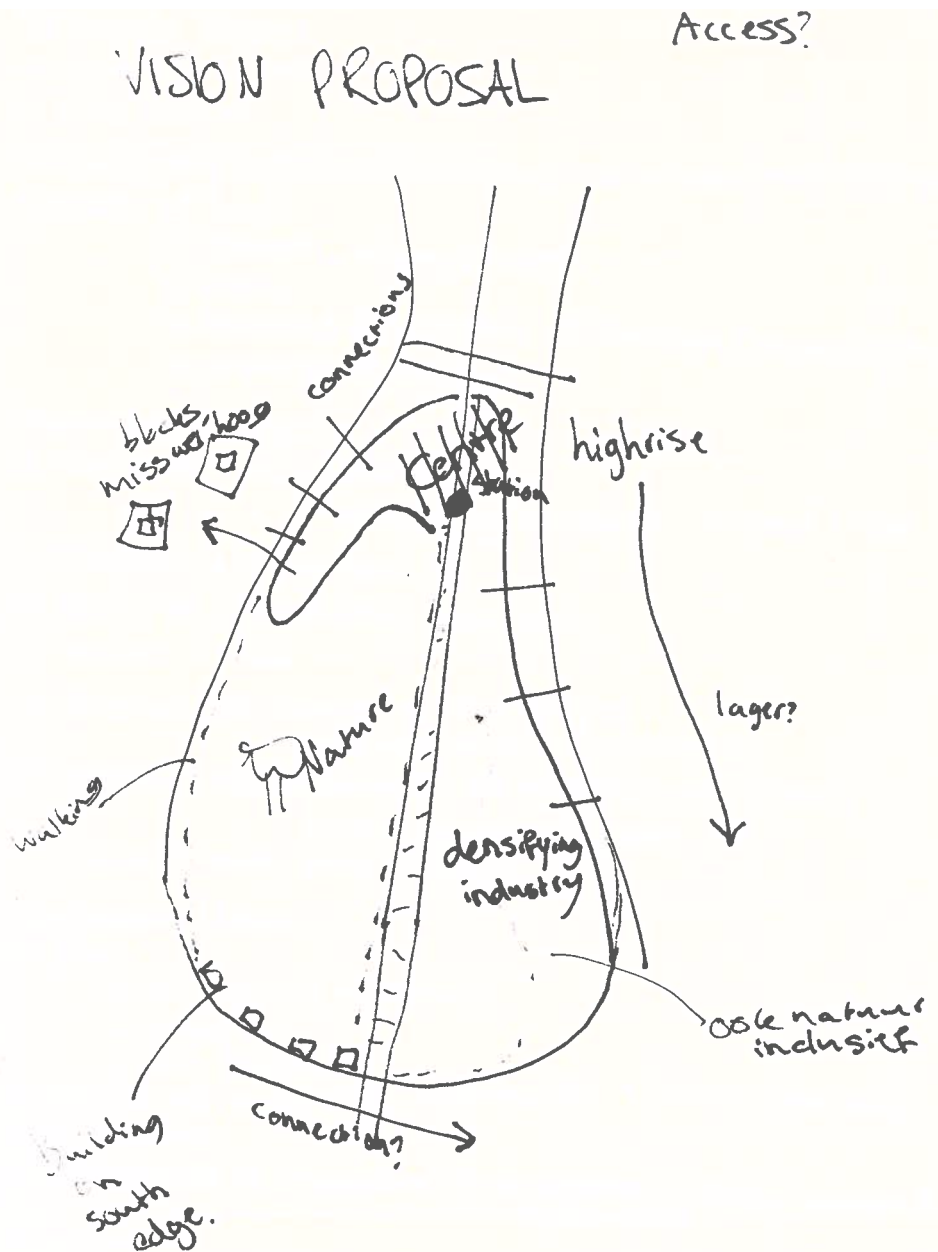 Access?
VISION PROPOSAL
connections
blocks,
miss
Centre
station
highrise
lager?
Nature
walking
densifying
industry
ook natuur
inclusief
connection?
Building
on
south
edge.